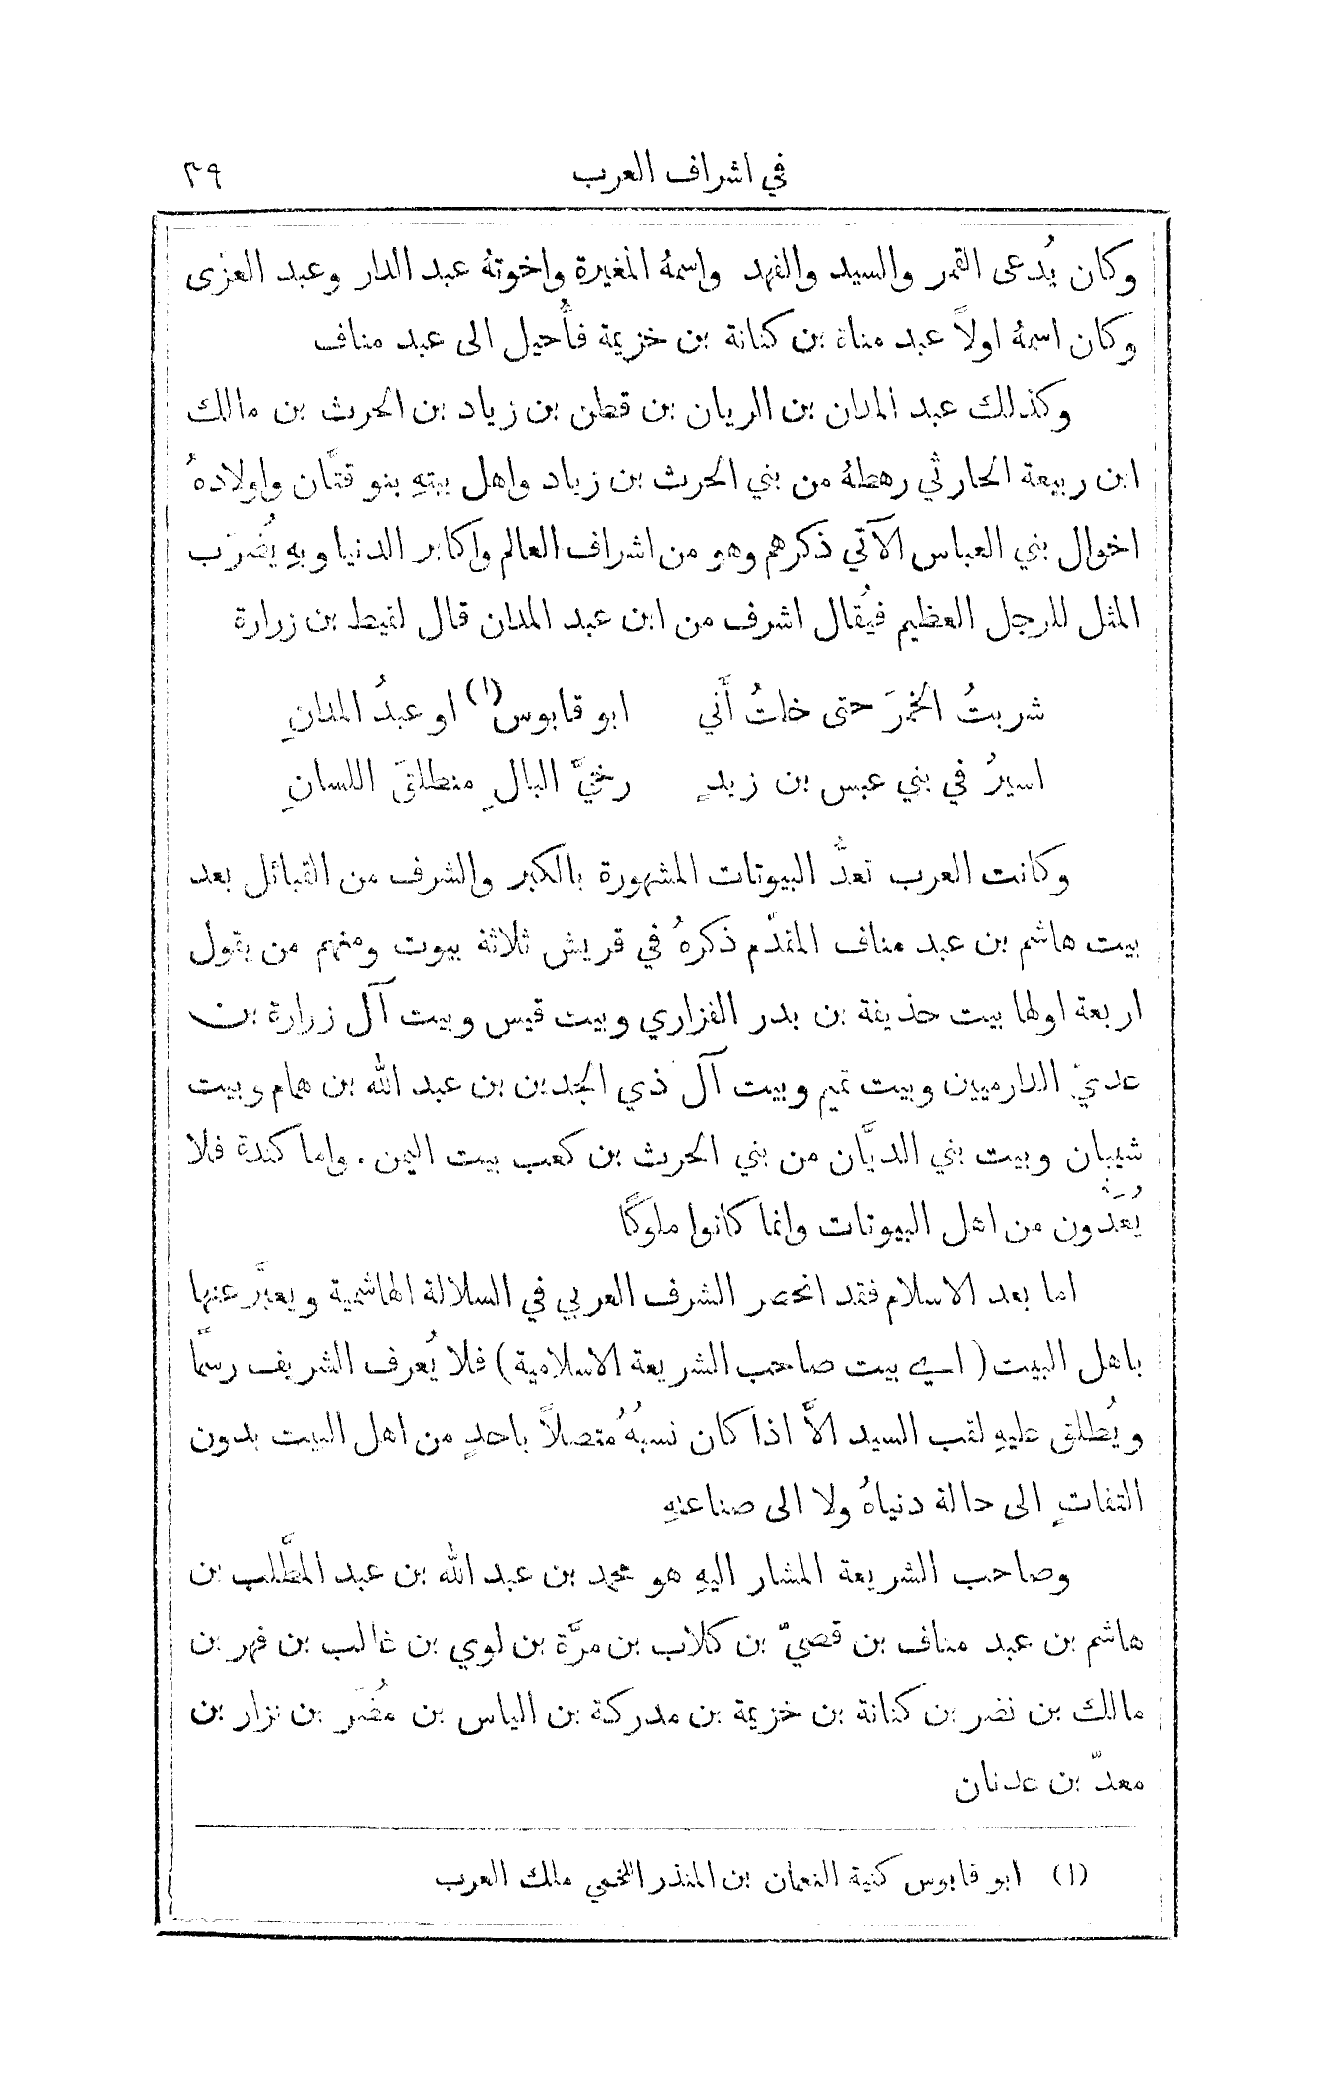 في اشراف العرب ٣٩
وكان يُدعى القمر والسيد والفهد واسمهُ المغيرة واخوتهُ عبد الدار وعبد العزى
وكان اسمهُ اولاً عبد مناة بن كنانة بن خزيمة فأُحيل الى عبد مناف
وكذلك عبد المدان بن الريان بن قطن بن زياد بن الحرث بن مالك
ابن ربيعة الحارثي رهطهُ من بني الحرث بن زياد واهل بيتهِ بنو قنَّان واولادهُ
اخوال بني العباس الآتي ذكرهم وهو من اشراف العالم واكابر الدنيا وبهِ يُضرَب
المثل للرجل العظيم فيُقال اشرف من ابن عبد المدان قال لقيط بن زرارة
شربتُ الخمرَ حتى خلتُ أَني ابو قابوس(١) او عبدُ المدانِ
اسيرُ في بني عبس بن زيدٍ رخيَّ البالِ منطلقَ اللسانِ
وكانت العرب تعدُّ البيوتات المشهورة بالكبر والشرف من القبائل بعد
بيت هاشم بن عبد مناف المقدَّم ذكرهُ في قريش ثلاثة بيوت ومنهم من يقول
اربعة اولها بيت حذيفة بن بدر الفزاري وبيت قيس وبيت آل زرارة بن
عديّ الدارميين وبيت تميم وبيت آل ذي الجدين بن عبد الله بن همام وبيت
شيبان وبيت بني الديَّان من بني الحرث بن كعب بيت اليمن . واما كندة فلا
يُعَدُّون من اهل البيوتات وانما كانوا ملوكًا
اما بعد الاسلام فقد انحصر الشرف العربي في السلالة الهاشمية ويعبَّر عنها
باهل البيت ( اي بيت صاحب الشريعة الاسلامية ) فلا يُعرف الشريف رسمًّا
ويُطلق عليهِ لقب السيد الاَّ اذا كان نسبُهُ متصلاً باحدٍ من اهل البيت بدون
التفاتٍ الى حالة دنياهُ ولا الى صناعتهِ
وصاحب الشريعة المشار اليهِ هو محمد بن عبد الله بن عبد المطَّلب بن
هاشم بن عبد مناف بن قصيّ بن كلاب بن مرَّة بن لوي بن غالب بن فهر بن
مالك بن نضر بن كنانة بن خزيمة بن مدركة بن الياس بن مُضَر بن نزار بن
معدّ بن عدنان
(١) ابو قابوس كنية النعمان بن المنذر اللخمي ملك العرب